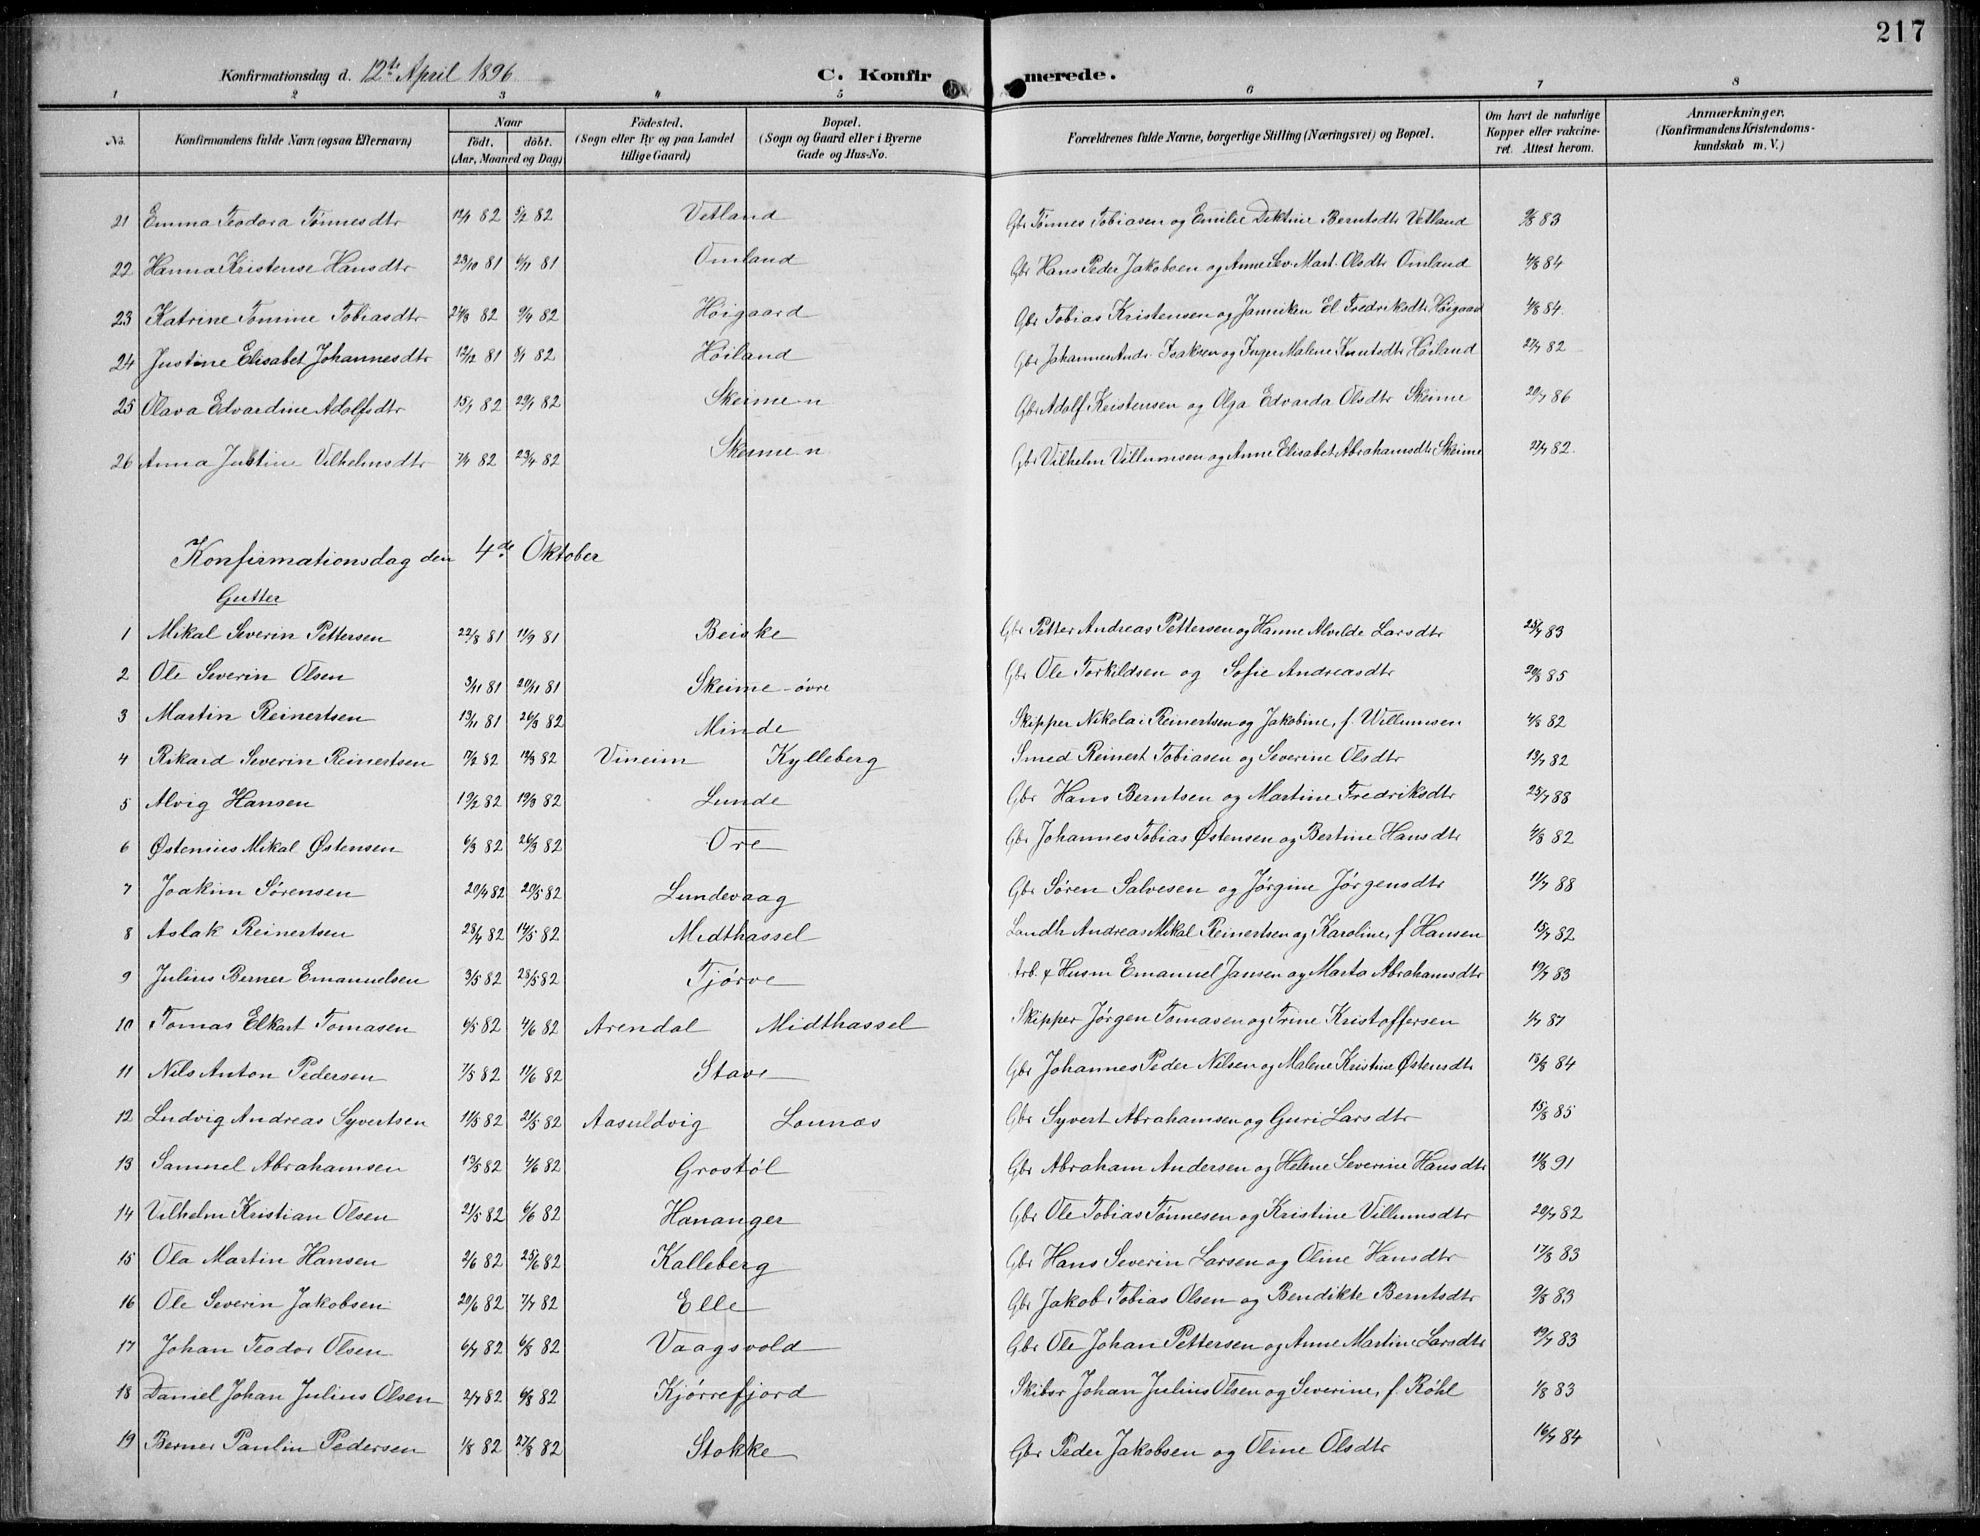 217
Konfirmationsdag d. 12te April 1896 C. Konfirmerede.
1 2 3 4 5 6 7 8
No. Konfirmandens fulde Navn (ogsaa Efternavn) Naar födt. döbt. (Aar, Maaned og Dag) Födested. (Sogn eller By og paa Landet tillige Gaard) Bopæl. (Sogn og Gaard eller i Byerne Gade og Hus-No. Forældrenes fulde Navne, borgerlige Stilling (Næringsvei) og Bopæl. Om havt de naturlige Kopper eller vakcineret. Attest herom. Anmærkninger. (Konfirmandens Kristendomskundskab m. V.)
21 Emma Teodora Tønnesdtr 82 5/2 82 Vetland Gbr Tønnes Tobiasen og Emilie Berntsdtr Vetland 9/8 83
22 Hanna Kristense Hansdtr 23/10 81 6/11 81 Omland Gbr Hans Peder Jakobsen og Anne Sev. Mart. Olsdtr Omland 4/8 84
23 Katrine Tomine Tobiasdtr 24/3 82 9/4 82 Høigaard Gbr Tobias Kristensen og Janniken El. Fredriksdtr Høigaard 4/8 84
24 Justine Elisabet Johannesdtr 12/12 81 8/1 82 Høiland Gbr Johannes Andr. Isaksen og Inger Malene Knutsdtr Høiland 27/7 82
25 Olava Edvardine Adolfsdtr 15/1 82 29/1 82 Skeime n Gbr Adolf Kristensen og Olga Edvarda Olsdtr Skeime 20/7 86
26 Anna Justine Vilhelmsdtr 7/4 82 23/4 82 Skeime n Gbr Vilhelm Villumsen og Anne Elisabet Abrahamsdtr Skeime 27/7 82
Konfirmationsdag den 4de Oktober
Gutter
1 Mikal Severin Pettersen 22/8 81 11/9 81 Beiske Gbr Petter Andreas Pettersen og Hanne Alvilde Larsdtr 25/7 83
2 Ole Severin Olsen 3/11 81 20/11 81 Skeime - øvre Gbr Ole Torkildsen og Sofie Andreasdtr 20/8 85
3 Martin Reinertsen 13/11 81 26/3 82 Minde Skipper Nikolai Reinertsen og Jakobine, f. Willumsen 4/8 82
4 Rikard Severin Reinertsen 17/2 82 12/3 82 Vineim Kylleberg Smed Reinert Tobiasen og Severine Olsdtr 13/7 82
5 Alvig Hansen 19/2 82 19/3 82 Lunde Gbr Hans Berntsen og Martine Fredriksdtr 25/7 88
6 Østenius Mikal Østensen 6/3 82 26/3 82 Ore Gbr Johannes Tobias Østensen og Bertine Hansdtr 4/8 82
7 Joakim Sørensen 20/4 82 20/5 82 Lundevaag Gbr Søren Salvesen og Jørgine Jørgensdtr 11/7 88
8 Aslak Reinertsen 28/4 82 14/5 82 Midthassel Landh Andreas Mikal Reinertsen og Karoline, f Hansen 15/7 82
9 Julius Berner Emanuelsen 3/5 82 28/5 82 Tjørve Arb. & Husm Emanuel Jansen og Marta Abrahamsdtr 19/7 83
10 Tomas Elkart Tomasen 6/5 82 4/6 82 Arendal Midthassel Skipper Jørgen Tomasen og Trine Kristoffersen 1/7 87
11 Nils Anton Pedersen 7/5 82 11/6 82 Stave Gbr Johannes Peder Nilsen og Malene Kristine Østensdtr 15/8 84
12 Ludvig Andreas Syvertsen 11/5 82 21/5 82 Aasuldvig Lounæs Gbr Syvert Abrahamsen og Guri Larsdtr 15/8 85
13 Samuel Abrahamsen 13/5 82 4/6 82 Grostøl Gbr Abraham Andersen og Helene Severine Hansdtr 11/8 91
14 Vilhelm Kristian Olsen 21/5 82 6/6 82 Hananger Gbr Ole Tobias Tønnesen og Kristine Villumsdtr 20/7 82
15 Ola Martin Hansen 2/6 82 25/6 82 Kalleberg Gbr Hans Severin Larsen og Oline Hansdtr 17/8 83
16 Ole Severin Jakobsen 20/6 82 7/7 82 Elle Gbr Jakob Tobias Olsen og Bendikte Berntsdtr 9/8 83
17 Johan Teodor Olsen 6/7 82 6/8 82 Vaagsvold Gbr Ole Johan Pettersen og Anne Martine Larsdtr 19/7 83
18 Daniel Johan Julius Olsen 2/7 82 6/8 82 Kjørrefjord Skibsr Johan Julius Olsen og Severine, f. Røhl 1/8 83
19 Berner Paulin Pedersen 1/8 82 27/8 82 Stokke Gbr Peder Jakobsen og Oline Olsdtr 16/7 84